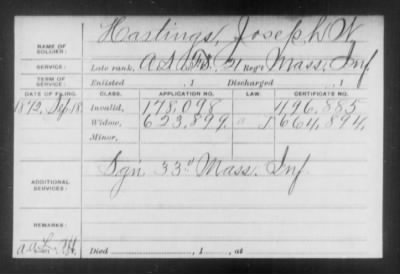 NAME OF SOLDIER: Hastings, Joseph W
SERVICE: Late rank, 21 Reg't Mass. Inf
TERM OF SERVICE: Enlisted , 1 Discharged , 1
DATE OF FILING. CLASS. APPLICATION NO. LAW. CERTIFICATE NO.
1872, Sep 18. Invalid, 178,098 496,885
Widow, 623,899 664,894,
Minor,
ADDITIONAL SERVICES: Sgn 33d Mass. Inf
REMARKS:
Died , 1 , at